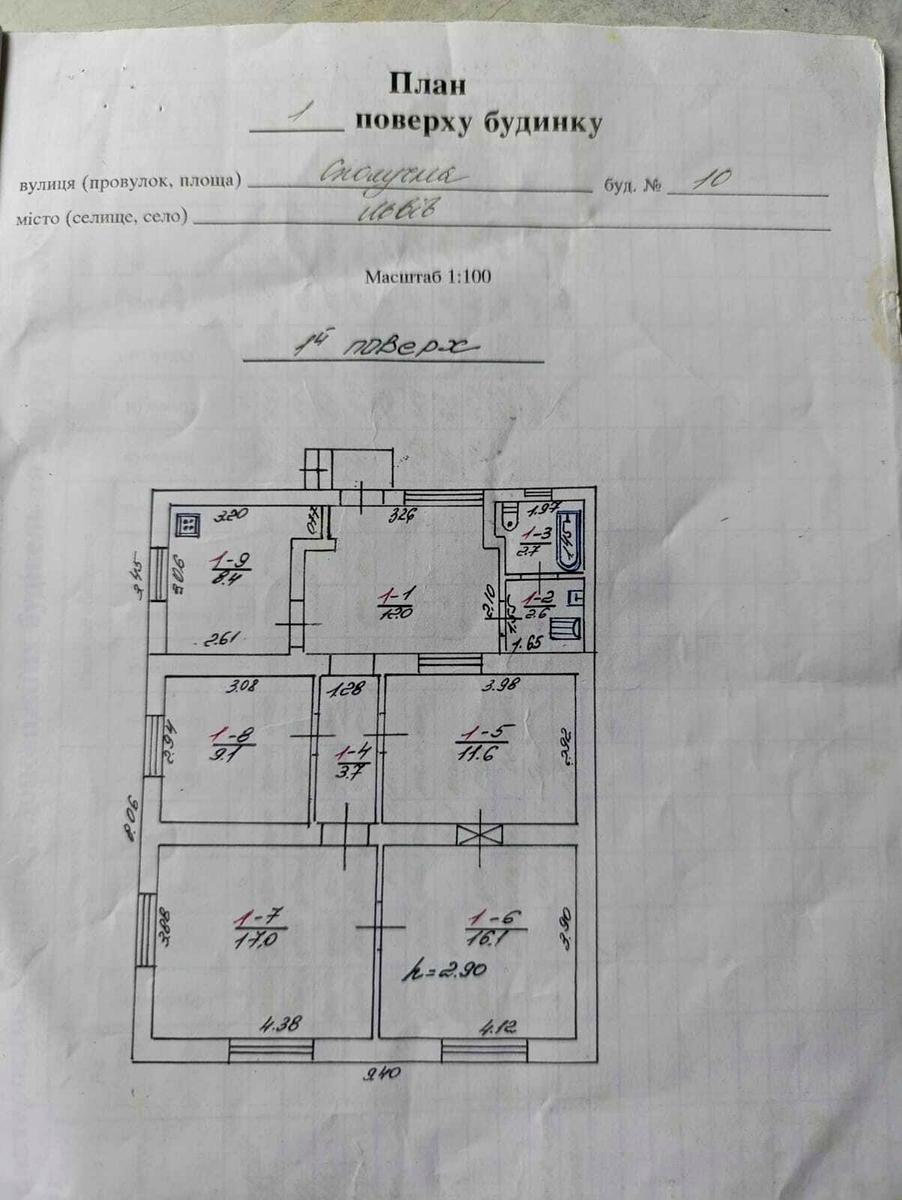 План
1 поверху будинку
вулиця (провулок, площа) Сполучна буд. № 10
місто (селище, село) Львів
Масштаб 1:100
1й поверх
3.20
3.26
1.97
1-3
2.7
1.45
3.45
3.06
1-9
8.4
1-1
12.0
2.10
1-2
2.6
2.61
1.65
3.08
1.28
3.98
2.94
1-8
9.1
1-4
3.7
1-5
11.6
2.92
8.06
3.88
1-7
17.0
1-6
16.1
3.90
h=2.90
4.38
4.12
9.40